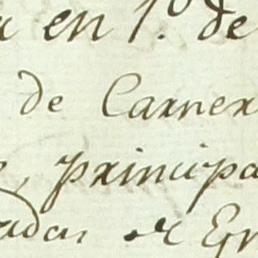 en 1.º de
de Carner
principa
adas